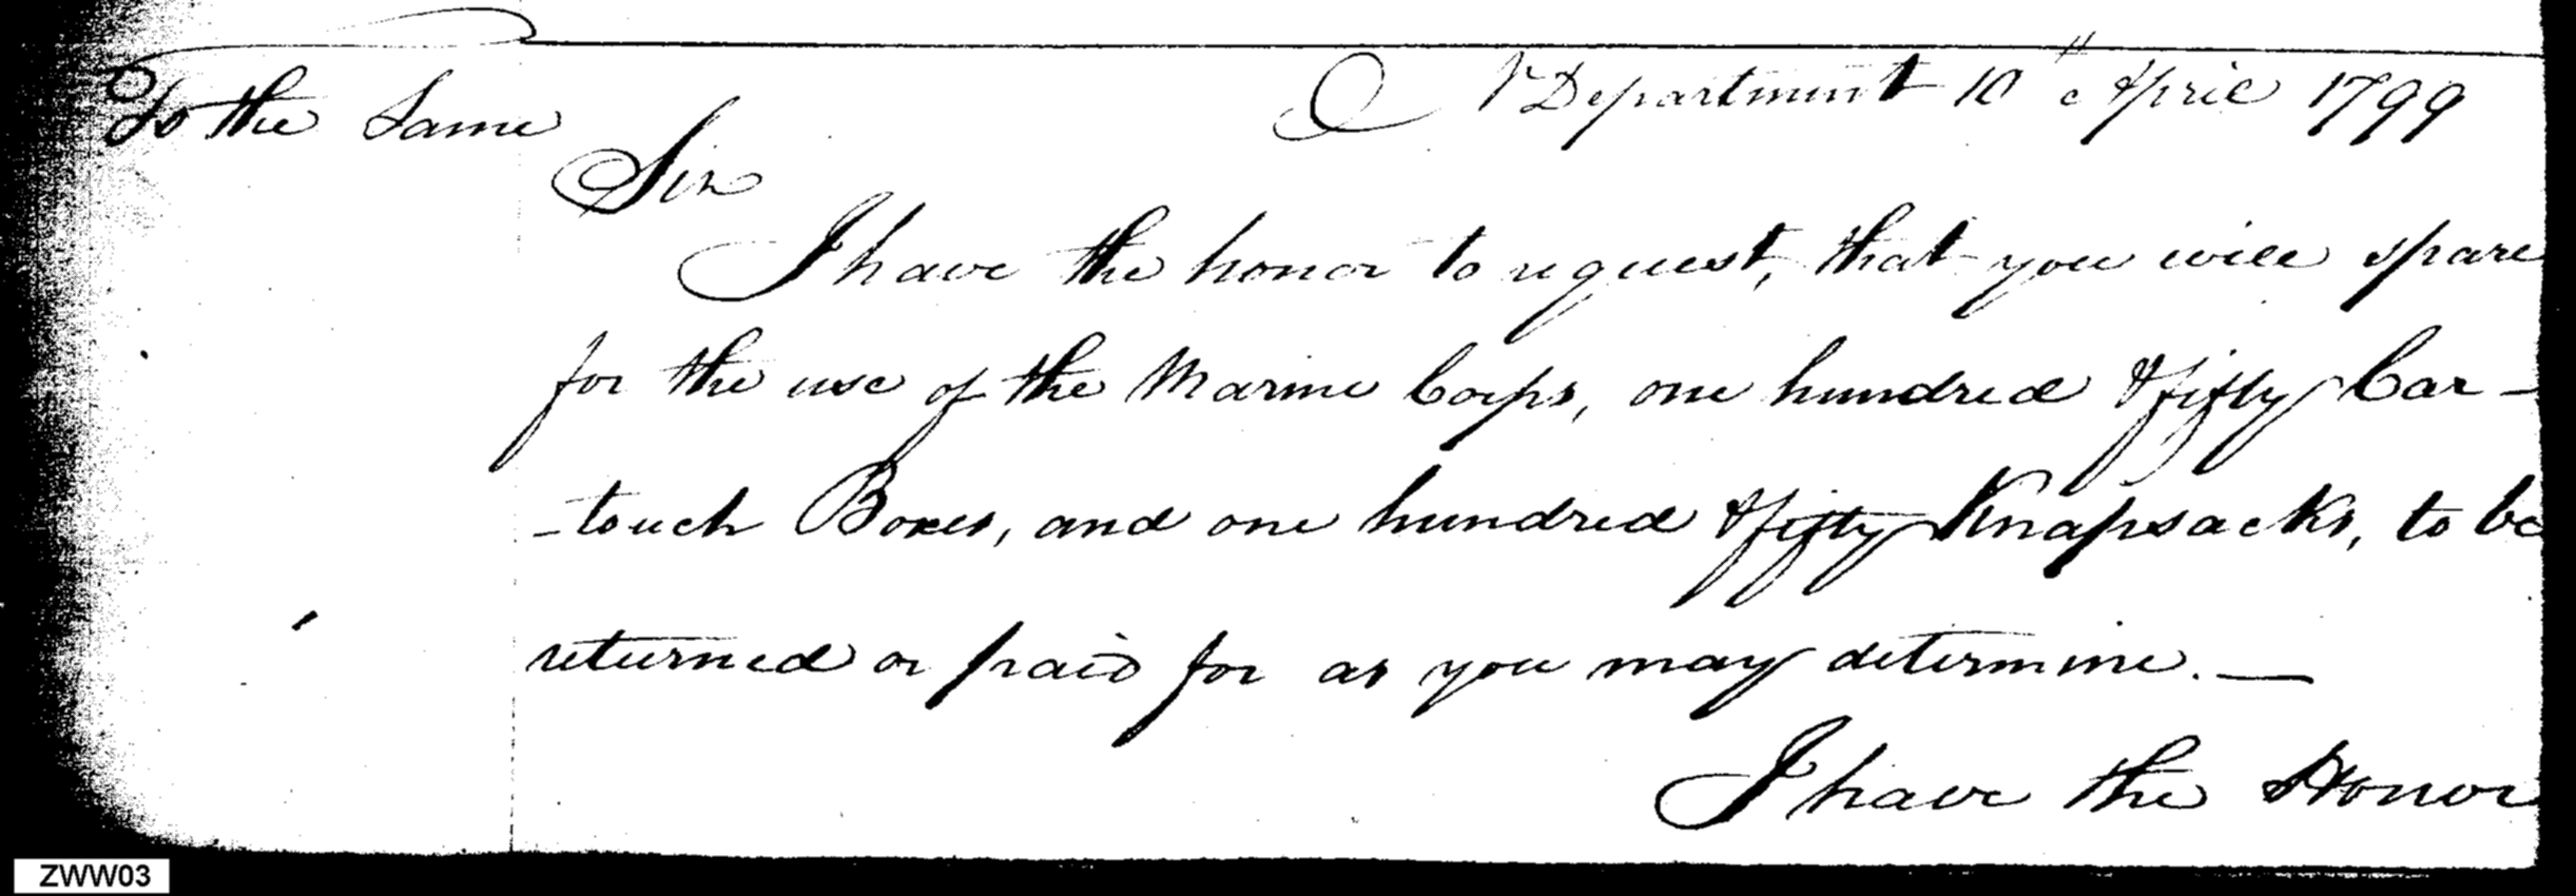 To the Same
N Department 10th April 1799
Sir
I have the honor to request, that you will spare
for the use of the Marine Corps, one hundred & fifty Car-
-touch Boxes, and one hundred & fifty Knapsacks, to be
returned or paid for as you may determine.—
I have the Honor
ZWW03